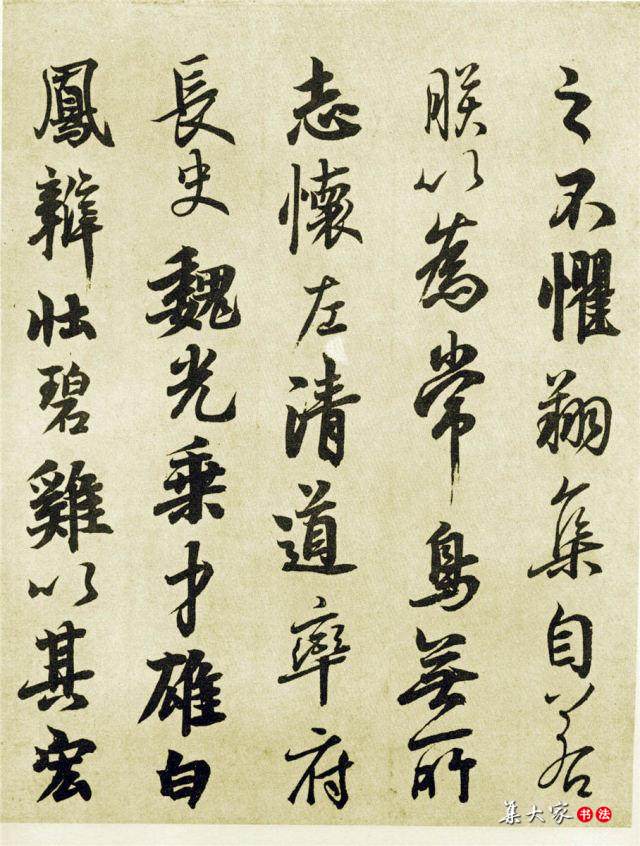 之不懼翔集自若
朕以為常鳥無所
志懷左清道率府
長史魏光乗才雄白
鳳辯壯碧雞以其宏
集大家书法